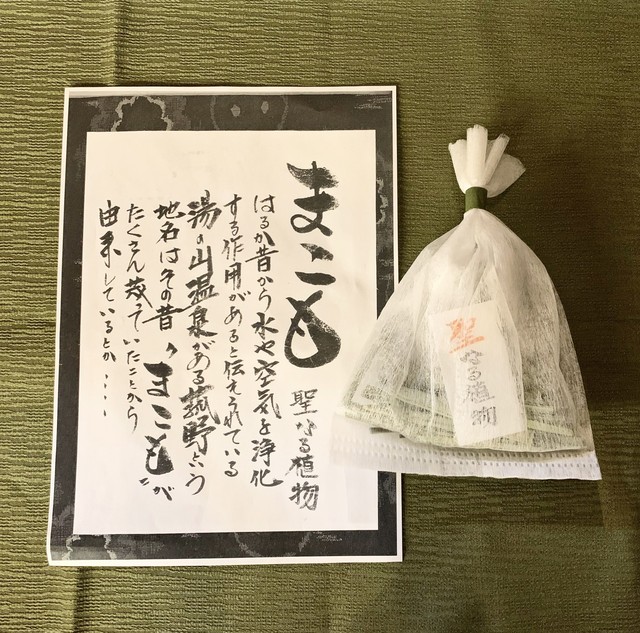 まこも 聖なる植物
はるか昔から水や空気を浄化
する作用があると伝えられている
湯の山温泉がある菰野という
地名はその昔〝まこも〟が
たくさん茂っていたことから
由来しているとか・・・・
聖なる植物